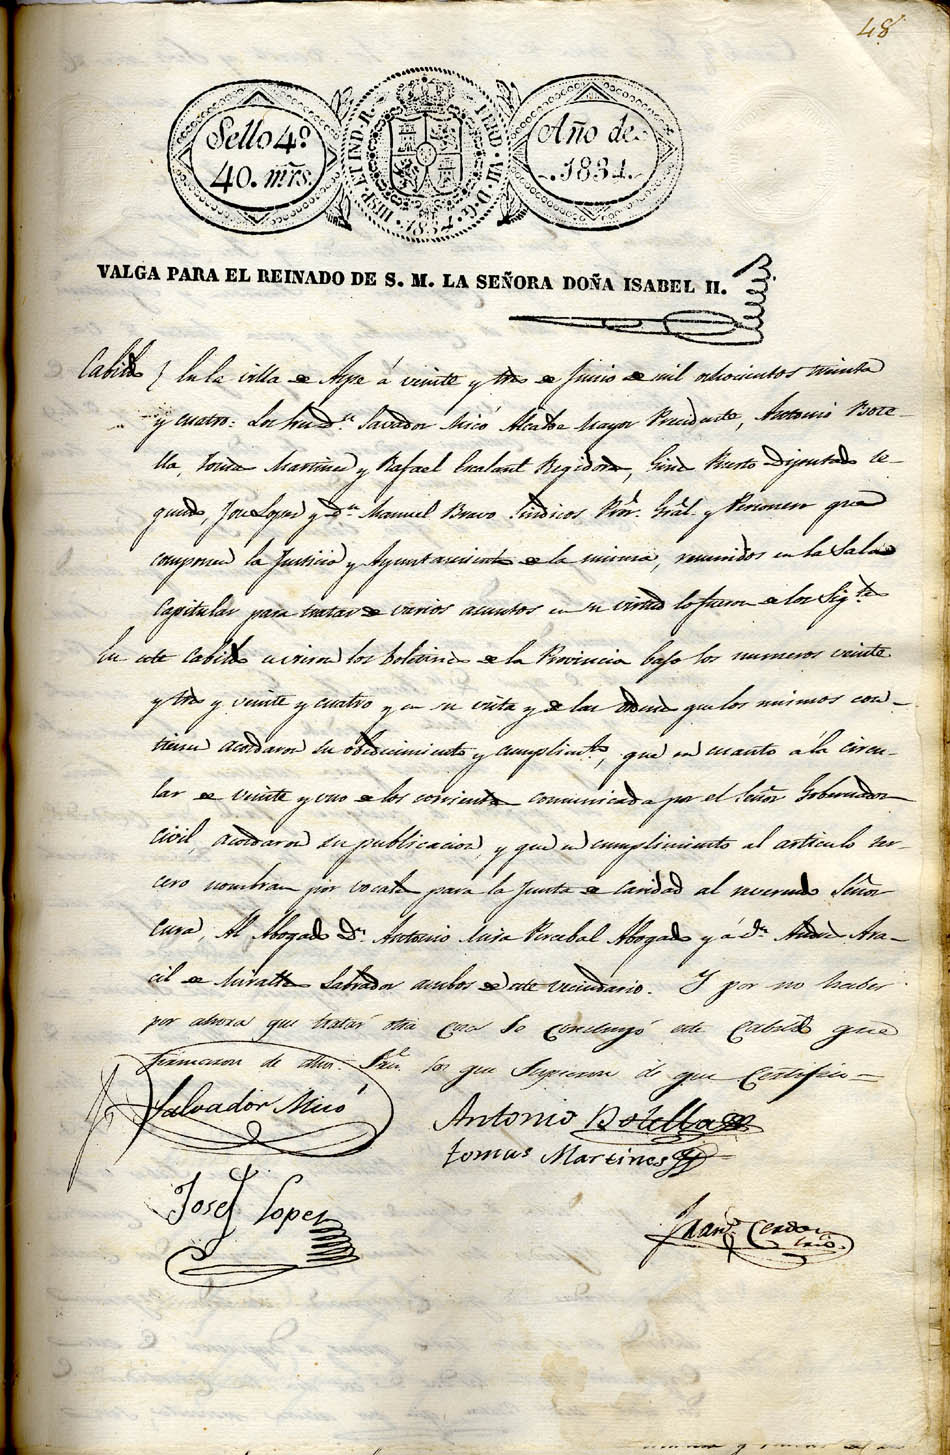 48
Sello 4º
40. mrs.
HISP. ET IND. R. FERD. VII. D. G. 1834.
Año de
1834.
VALGA PARA EL REINADO DE S. M. LA SEÑORA DOÑA ISABEL II.
Cabildo En la villa de Aspe á veinte y tres de Junio de mil ochocientos treinta
y cuatro: Los Salvador Micó Alcalde Mayor Presidente, Antonio Bote-
lla, Tomas Martinez y Rafael Regidores, Gines Diputado se-
gundo, Jose Lopez y dn Manuel Bravo Sindicos Pror. Gral. y Personero que
componen la Justicia y Ayuntamiento de la misma, reunidos en la Sala
Capitular para tratar de varios asuntos en su virtud lo fueron de los Sigtes
En este Cabildo se vieron los boletines de la Provincia bajo los numeros veinte
y tres y veinte y cuatro y en su vista y de las ordenes que los mismos con-
tienen acordaron su obedecimiento y cumplimto, que en cuanto á la circu-
lar de veinte y uno de los corrientes comunicada por el Señor Gobernador
Civil, acordaron su publicacion, y que en cumplimiento al articulo ter-
cero nombran por vocales para la Junta de Caridad al reverendo Señor
Cura, Al Abogado Dn. Antonio Mira Percebal Abogado y á dn. Andres Ara-
cil de Miralles Labrador ambos de este vecindario. Y por no haber
por ahora que tratar otra cosa se concluyó este Cabildo que
firmaron de dhos. Sres. los que Supieron de que Certifico=
Salvador Micó
Antonio Botella
tomas Martines
Josef Lopez
Franco.